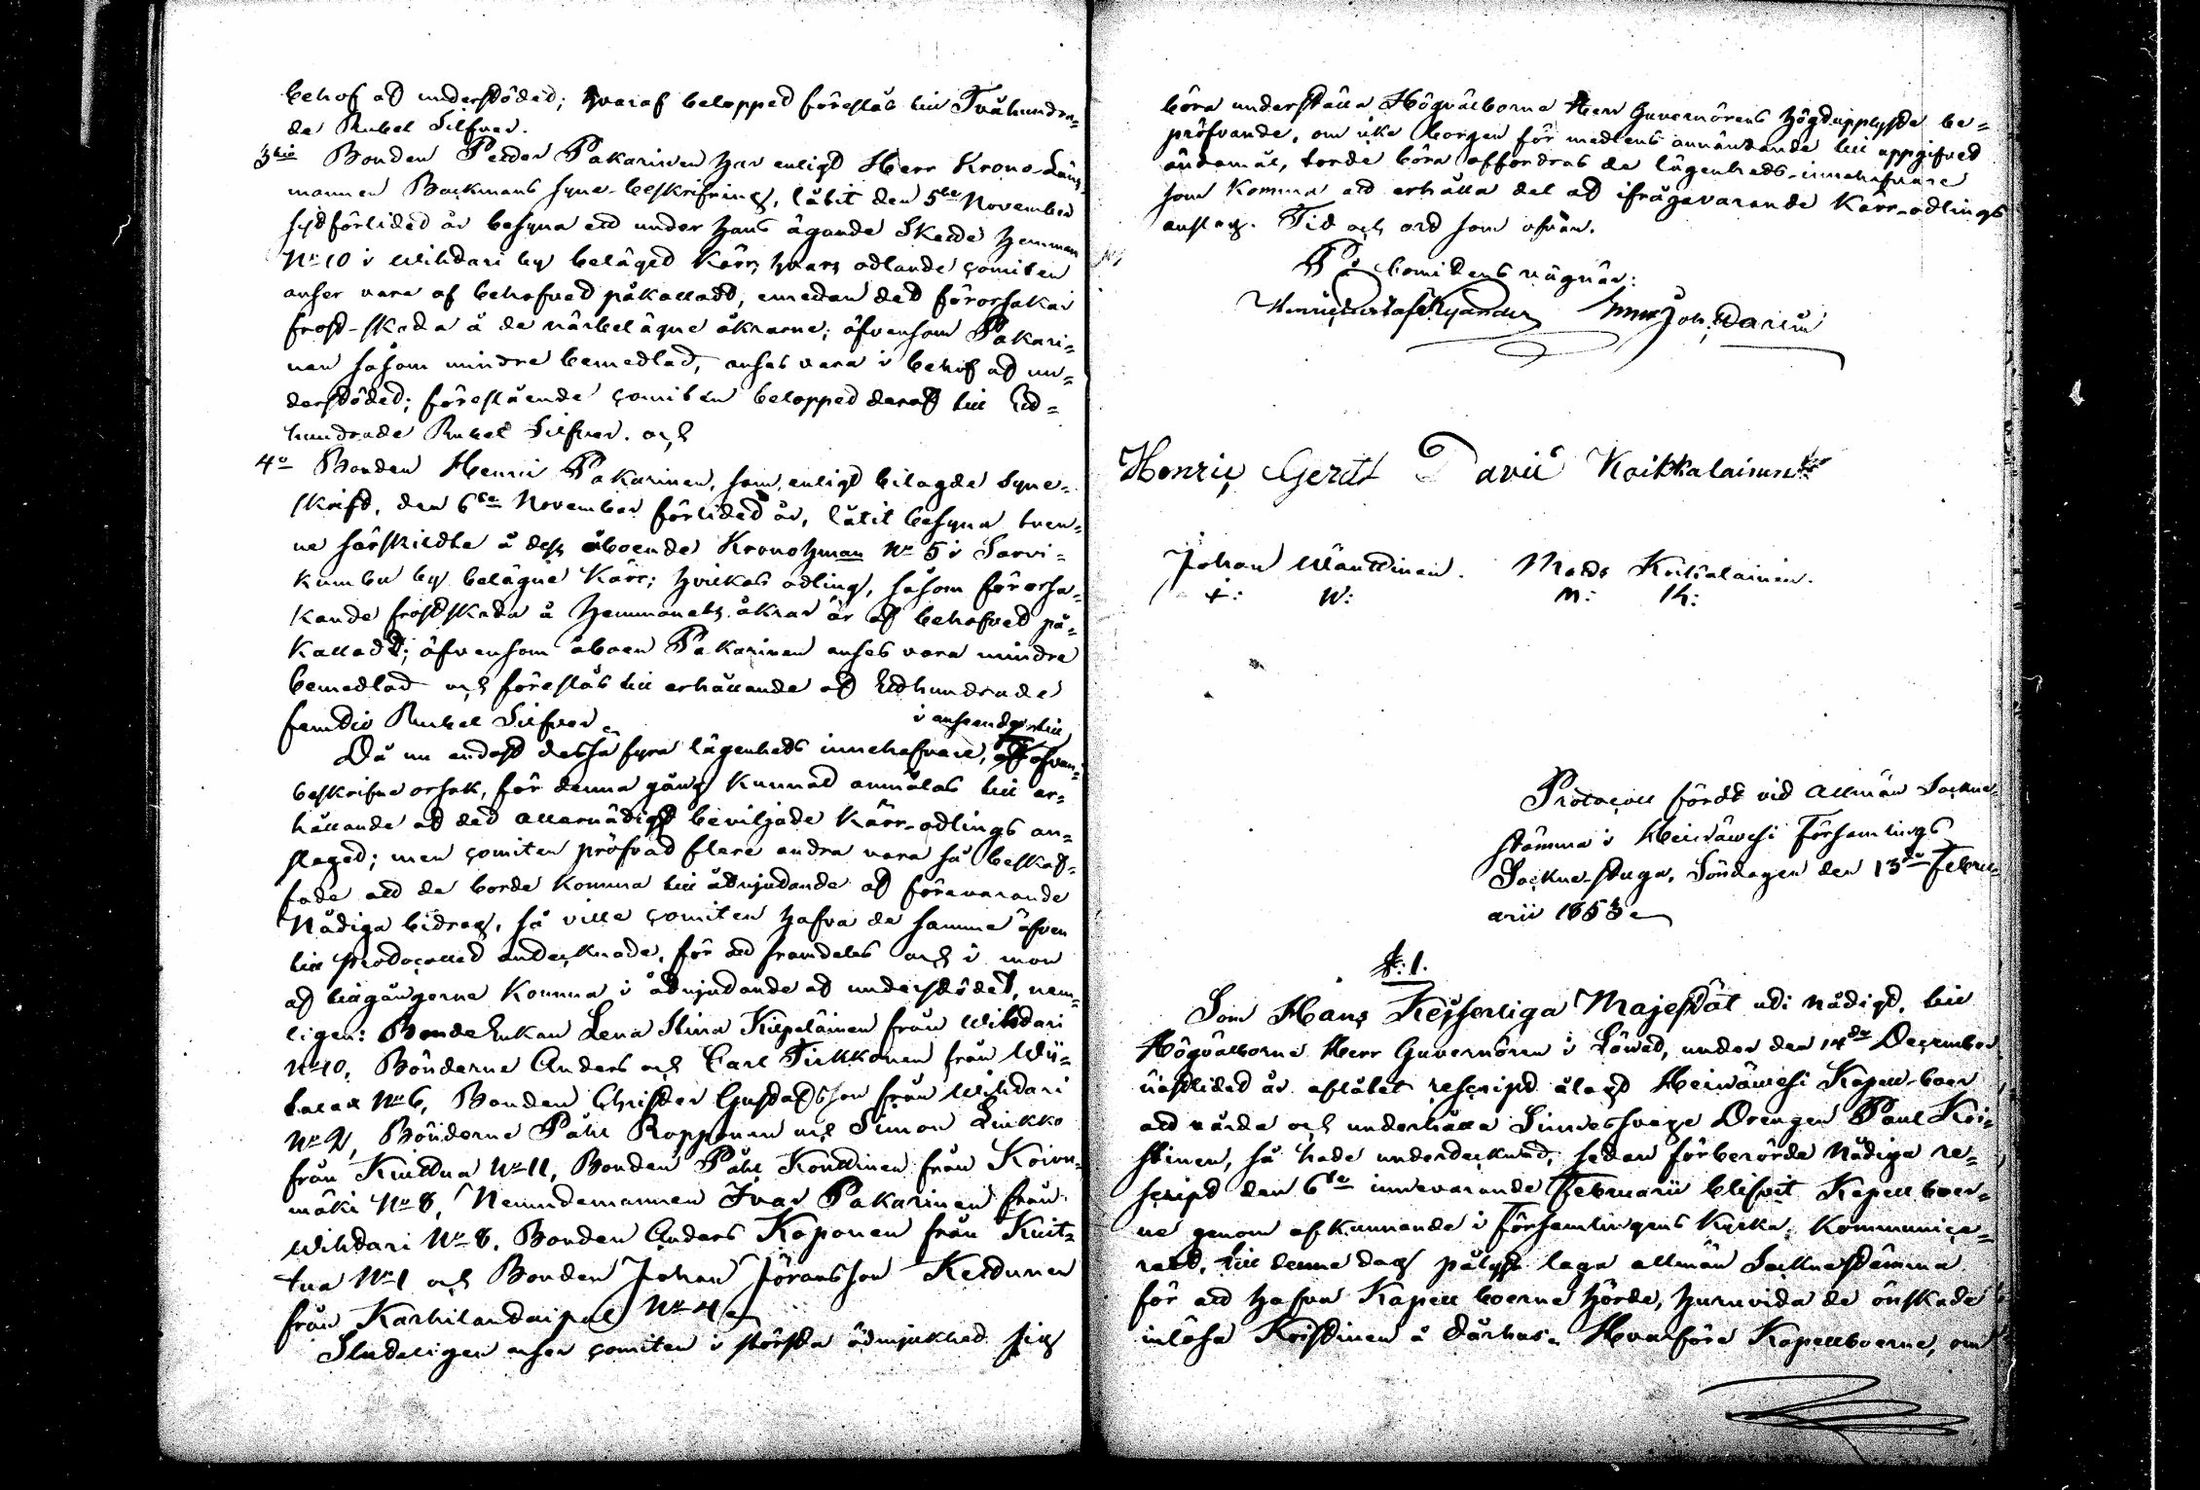 behof af understödet; hvaraf beloppet föreslås till Tvåhundra=
de Rubel Silfver.
3tio Bonden Petter Pakarinen har enligt Herr Krono-Läns-
mannen Backmans syne-beskrifning, låtit den 5te November
sistförlidet år besyna ett under hans ägande Skatte hemman
No 10 i Wihdari by beläget Kärr, hvars odlande Comiten
anser vara af behofvet påkalladt, emedan det förorsakar
frost-skada å de närbelägne åkrarne; äfvensom Pakari=
nen såsom mindre bemedlad, anses vara i behof af un=
derstödet; föreslående Comiten beloppet deraf till Ett=
hundrade Rubel Silfver. och
4o Bonden Henric Pakarinen, som, enligt bilagde Syne-
skrift, den 6te November förlidet år, låtit besyna tven=
ne särskildta å dess åboende Kronohman No 5 i Sarvi=
kumbu by belägne Kärr; hvilkas odling, såsom förorsa=
kande frostskada å hemmanets åkrar är af behofvet på=
kalladt; äfvensom åboen Pakarinen anses vara mindre
bemedlad och föreslås till erhållande af Etthundrade
femtio Rubel Silfver.
i anseende till
Då nu endast dessa fyra lägenhets innehafvare, ofvan=
beskrifne orsak, för denna gång kunnat anmälas till er=
hållande af det allernådigst beviljade Kärr-odlings an=
slaget; men Comiten pröfvat flere andra vara så beskaf=
fade att de borde komma till åtnjutande af förevarande
Nådiga bidrag, så ville Comiten hafva de samma äfven
till Protocollet antecknade, för att framdeles och i mon
af tillgångerne komma i åtnjutande af understödet, nem=
ligen: BondeEnkan Lena Stina Kilpeläinen från Wihdari
No 10, Bönderne Anders och Carl Tirkkonen från Wii=
tala No 6, Bonden Christer Gustafsson från Wihdari
No 2, Bönderne Påhl Ropponen och Simon Luikko
från Kuittua No 11, Bonden Påhl Konttinen från Koivu=
mäki No 8, Nemndemannen Ivar Pakarinen från
Wihdari No 8, Bonden Anders Koponen från Kuit=
tua No 1 och Bonden Johan Jöransson Kettunen
från Karhilandaipal No 4.
Sluteligen anser Comiten i största ödmjukhet sig
böra underställa Högvälborne Herr Guvernörens Högtupplyste be=
pröfvande, om icke borgen för medlens användande till uppgifvet
ändamål, torde böra affordras de lägenhets-innehafvare
som komma att erhålla del af ifrågavarande Kärr-odlings
anslag. Tid och ort som ofvan.
På Comitens vägnar:
Henric Gustaf Kyander Joh: Warén
Henric Gerdt David Kaikkalainen
Johan Wänttinen. Matts Kaikalainen.
+: W: M: K:
Protocoll fördt vid allmän Sockne-
stämma i Heinäwesi Församlings
Sockne-stuga, Söndagen den 13de Febru-
arii 1853.
§: 1.
Som Hans Kejserliga Majestät uti nådigt, till
Högvälborne Herr Guvernören i Länet, under den 14de December
nästlidet år aflåtet rescript ålagt Heinäwesi Kapell-boer
att vårda och underhålla Sinnessvage Drengen Paul Koi=
stinen, så hade undertecknad, sedan förberörde Nådiga re=
script den 6te innevarande Februarii blifvit Kapellboer=
ne genom afkunnande i Församlingens Kyrka, kommunice=
radt, till denne dag pålyst laga allmän Socknestämma
för att hafva Kapellboerne hörde, huruvida de önskade
inlösa Koistinen å dårhus. Hvarföre Kapellboerne, om